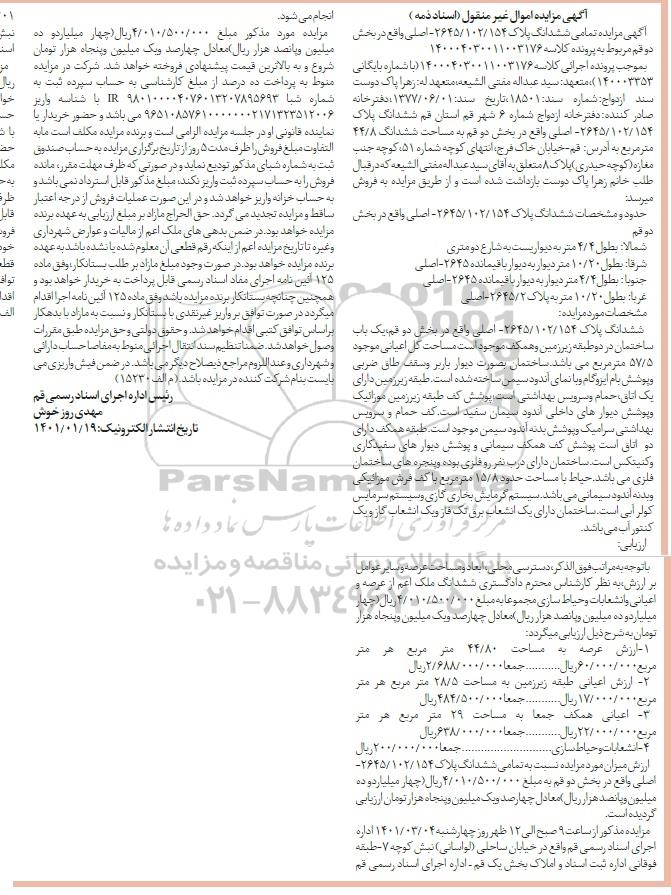 آگهی مزایده اموال غیر منقول (اسناد ذمه)
آگهی مزایده تمامی ششدانگ پلاک ۲۶۴۵/۱۰۲/۱۵۴- اصلی واقع در بخش
دو قم مربوط به پرونده کلاسه ۱۴۰۰۰۴۰۳۰۰۱۱۰۰۳۱۷۶
بموجب پرونده اجرائی کلاسه ۱۴۰۰۰۴۰۳۰۰۱۱۰۰۳۱۷۶(با شماره بایگانی
۱۴۰۰۰۳۳۵۳)،متعهد: سید عبداله مفتی الشیعه؛متعهد له: زهرا پاک دوست
سند ازدواج:شماره سند:۱۸۵۰۱،تاریخ سند:۱۳۷۷/۰۶/۰۱،دفترخانه
صادر کننده: دفترخانه ازدواج شماره ۶ شهر قم استان قم ششدانگ پلاک
۲۶۴۵/۱۰۲/۱۵۴- اصلی واقع در بخش دو قم به مساحت ششدانگ ۴۴/۸
مترمربع به آدرس: قم-خیابان خاک فرج، انتهای کوچه شماره ۵۱، کوچه جنب
مغازه(کوچه حیدری)پلاک ۸ متعلق به آقای سید عبداله مفتی الشیعه که در قبال
طلب خانم زهرا پاک دوست بازداشت شده است و از طریق مزایده به فروش
میرسد:
حدود و مشخصات ششدانگ پلاک ۲۶۴۵/۱۰۲/۱۵۴- اصلی واقع در بخش
دو قم
شمالا: بطول ۴/۴ متر به دیواریست به شارع دو متری
شرقا: بطول ۱۰/۲۰ متر دیوار به دیوار باقیمانده ۲۶۴۵-اصلی
جنوبا: بطول ۴/۴ متر دیوار به دیوار باقیمانده ۲۶۴۵-اصلی
غربا: بطول ۱۰/۲۰ متر به پلاک ۲۶۴۵/۲-اصلی
مشخصات مورد مزایده:
ششدانگ پلاک ۲۶۴۵/۱۰۲/۱۵۴- اصلی واقع در بخش دو قم؛یک باب
ساختمان در دو طبقه زیرزمین و همکف موجود است مساحت کل اعیانی موجود
۵۷/۵ مترمربع می باشد.ساختمان بصورت دیوار باربر وسقف طاق ضربی
وپوشش بام ایزوگام وبا نمای آندود سیمن ساخته شده است.طبقه زیرزمین دارای
یک اتاق،حمام وسرویس بهداشتی است؛پوشش کف طبقه زیرزمین موزائیک
وپوشش دیوار های داخلی آندود سیمان سفید است.کف حمام و سرویس
بهداشتی سرامیک وپوشش بدنه آندود سیمن موجود است.طبقه همکف دارای
دو اتاق است پوشش کف همکف سیمانی و پوشش دیوار های سفیدکاری
وکنیتکس است.ساختمان دارای درب نفر رو فلزی بوده وپنجره های ساختمان
فلزی می باشد.حیاط با مساحت حدود ۱۵/۸ مترمربع با کف فرش موزائیکی
وبدنه آندود سیمانی می باشد.سیستم گرمایش بخاری گازی وسیستم سرمایس
کولر آبی است.ساختمان دارای یک انشعاب برق تک فاز ویک انشعاب گاز و یک
کنتور آب می باشد.
ارزیابی:
با توجه به مراتب فوق الذکر،دسترسی محلی،ابعاد و مساحت عرصه و سایر عوامل
بر ارزش،به نظر کارشناس محترم دادگستری ششدانگ ملک اعم از عرصه و
اعیانی وانشعابات و حیاط سازی مجموعا به مبلغ ۴/۰۱۰/۵۰۰/۰۰۰ ریال(چهار
میلیارد و ده میلیون وپانصد هزار ریال)معادل چهارصد ویک میلیون وپنجاه هزار
تومان به شرح ذیل ارزیابی میگردد:
۱-ارزش عرصه به مساحت ۴۴/۸۰ متر مربع هر متر
مربع۶۰/۰۰۰/۰۰۰ریال...........جمعا۲/۶۸۸/۰۰۰/۰۰۰ریال
۲- ارزش اعیانی طبقه زیرزمین به مساحت ۲۸/۵ متر مربع هر متر
مربع۱۷/۰۰۰/۰۰۰ریال...........جمعا۴۸۴/۵۰۰/۰۰۰ریال
۳- اعیانی همکف جمعا به مساحت ۲۹ متر مربع هر متر
مربع۲۲/۰۰۰/۰۰۰ریال...........جمعا۶۳۸/۰۰۰/۰۰۰ریال
۴-انشعابات وحیاط سازی............................جمعا۲۰۰/۰۰۰/۰۰۰ریال
ارزش میزان مورد مزایده نسبت به تمامی ششدانگ پلاک ۲۶۴۵/۱۰۲/۱۵۴-
اصلی واقع در بخش دو قم به مبلغ ۴/۰۱۰/۵۰۰/۰۰۰ریال(چهار میلیارد و ده
میلیون وپانصد هزار ریال)معادل چهارصد ویک میلیون وپنجاه هزار تومان ارزیابی
گردیده است.
مزایده مذکور از ساعت ۹ صبح الی ۱۲ ظهر روز چهارشنبه ۱۴۰۱/۰۳/۰۴ اداره
اجرای اسناد رسمی قم واقع در خیابان ساحلی (لواسانی) نبش کوچه ۷-طبقه
فوقانی اداره ثبت اسناد و املاک بخش یک قم - اداره اجرای اسناد رسمی قم
انجام می شود.
مزایده مورد مذکور مبلغ ۴/۰۱۰/۵۰۰/۰۰۰ریال(چهار میلیارد و ده
میلیون وپانصد هزار ریال)معادل چهارصد ویک میلیون وپنجاه هزار تومان
شروع و به بالاترین قیمت پیشنهادی فروخته خواهد شد. شرکت در مزایده
منوط به پرداخت ده درصد از مبلغ کارشناسی به حساب سپرده ثبت به
شماره شبا IR ۹۸۰۱۰۰۰۰۴۰۷۶۰۱۳۲۰۷۸۹۵۶۹۳ با شناسه واریز
۹۶۵۱۰۸۵۷۶۱۰۰۰۰۰۰۰۲۱۷۱۳۲۳۵۱۲۰۰۶ می باشد و حضور خریدار یا
نماینده قانونی او در جلسه مزایده الزامی است و برنده مزایده مکلف است مابه
التفاوت مبلغ فروش را ظرف مدت ۵ روز از تاریخ برگزاری مزایده به حساب صندوق
ثبت به شماره شبای مذکور تودیع نماید و در صورتی که ظرف مهلت مقرر، مانده
فروش را به حساب سپرده ثبت واریز نکند، مبلغ مذکور قابل استرداد نمی باشد و
به حساب خزانه واریز خواهد شد و در این صورت عملیات فروش از درجه اعتبار
ساقط و مزایده تجدید می گردد. حق الحراج مازاد بر مبلغ ارزیابی به عهده برنده
مزایده خواهد بود. در ضمن بدهی های ملک اعم از مالیات و عوارض شهرداری
وغیره تا تاریخ مزایده اعم از اینکه رقم قطعی آن معلوم شده یا نشده باشد به عهده
برنده مزایده خواهد بود.در صورت وجود مبلغ مازاد بر طلب بستانکار،وفق ماده
۱۲۵ آئین نامه اجرای مفاد اسناد رسمی قابل پرداخت به خریدار خواهد بود و
همچنین چنانچه بستانکار برنده مزایده باشد وفق ماده ۱۲۵ آئین نامه اجرا اقدام
میگردد در صورت توافق بر واریز غیرنقدی با بستانکار و نسبت به مازاد با بدهکار
براساس توافق کتبی اقدام خواهد شد. و حقوق دولتی و حق مزایده طبق مقررات
وصول خواهد شد. ضمنا تنظیم سند انتقال اجرائی منوط به مفاصا حساب دارائی
و شهرداری و عند اللزوم مراجع ذیصلاح دیگر می باشد. در ضمن فیش واریزی می
بایست بنام شرکت کننده در مزایده باشد. (م الف ۱۵۲۳۰)
رئیس اداره اجرای اسناد رسمی قم
مهدی روز خوش
تاریخ انتشار الکترونیک: ۱۴۰۱/۰۱/۱۹
ParsNamadData
مرکز فرآوری اطلاعات پارس نماد داده ها
پایگاه اطلاع رسانی مناقصه و مزایده
۰۲۱-۸۸۳۴۹۶۷۰-۵